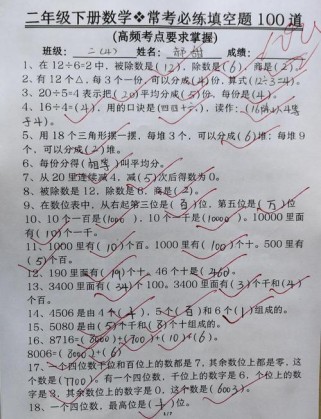 二年级下册数学❖常考必练填空题100道
(高频考点要求掌握)
班级： 二(4) 姓名： 成绩：
1、在12÷6=2中，被除数是(12)，除数是(6)，商是(2)。
2、有12个△，每3个一份，可以分成(4)份，算式(12÷3=4)。
3、20÷5=4表示把(20)平均分成(5)份，每份是(4)。
4、16÷4=(4)，用的口诀是(四四十六)，读作：(16除以4等
于4)。
5、用18个三角形摆一摆，每堆3个，可以分成(6)堆；每堆9
个，可以分成(2)堆。
6、每份分得(相等)叫平均分。
7、从20里连续减4，减(5)次后得数为0。
8、被除数是12，除数是6，商是(2)。
9、在数位表中，从右起第三位是(百)位，第五位是(万)位
10、10个一百是(1000)，10个一千是(10000)。10000里面
有(10)个一千。
11、1000里有(10)个百。1000里有(100)个十。500里有
(5)个百。
12、190里面有(19)个十。46个十是(460)。
13、3400里面有(34)个100。3400里面有(3)个千和(4)
个百。
14、4506是由4个(千)，5个(百)和6个(1)组成的。
15、5080是由(5)个千和(8)个十组成的。
16、8716=(8000)+(700)+(10)+(6)。
8006=(8000)+(6)
17、一个四位数千位和百位上的数都是7，其余数位上都是零，这
个数是(7700)。有一个四位数，千位上的数字是6，个位上的数
字是3，其余数位上的数字是0，这个数是(6003)。
18、一个四位数，最高位是(千)位。